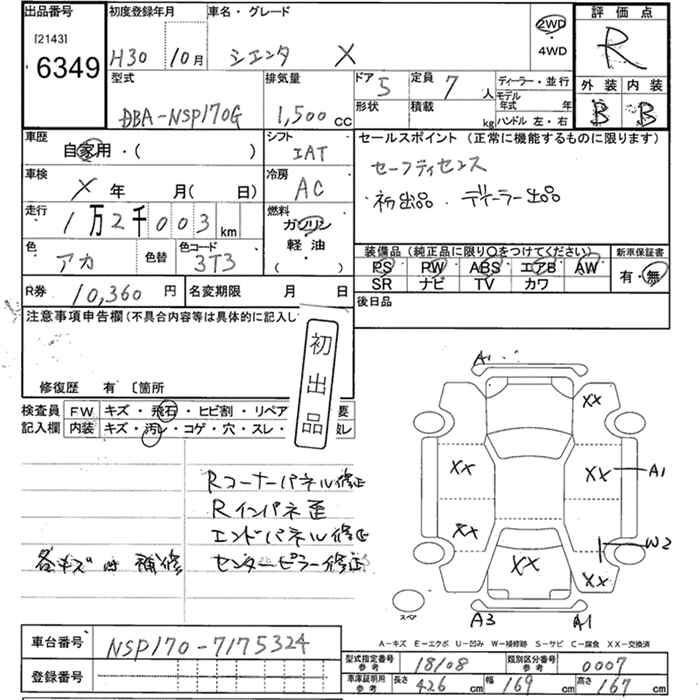 出品番号 初度登録年月 車名・グレード 評価点
[2143] 2WD
6349 H30 10月 シエンタ X ・4WD R
型式 排気量 ドア 定員 ディーラー・並行 外装 内装
DBA-NSP170G 1,500cc 5 7人 モデル年式 年
形状 積載 kg ハンドル 左・右 B B
車歴 シフト セールスポイント (正常に機能するものに限ります)
自家用・( ) IAT セーフティセンス
車検 冷房
X 年 月( 日) AC ・初出品 ・ディーラー出品
走行 燃料
1万2千003km ガソリン
色 色替 色コード 軽油 装備品(純正品に限り○をつけてください) 新車保証書
アカ 3T3 ( ) PS PW ABS エアB AW 有・無
SR ナビ TV カワ
R券 10,360 円 名変期限 月 日 後日品
注意事項申告欄(不具合内容等は具体的に記入し
初出品
修復歴 有 〔箇所
検査員 FW キズ・飛石・ヒビ割・リペア 要
記入欄 内装 キズ・汚レ・コゲ・穴・スレ
A1
XX
XX XX A1
Rコーナーパネル修正
Rインパネ歪
エンドパネル修正 XX W2
各キズ 補修 センターピラー修正 XX XX
スペア A3 A1
A-キズ E-エクボ U-凹み W-補修跡 S-サビ C-腐食 XX-交換済
車台番号 NSP170-7175324
型式指定番号 参考 18108 類別区分番号 参考 0007
登録番号 車庫証明用 参考 長さ 426cm 幅 169cm 高さ 167cm